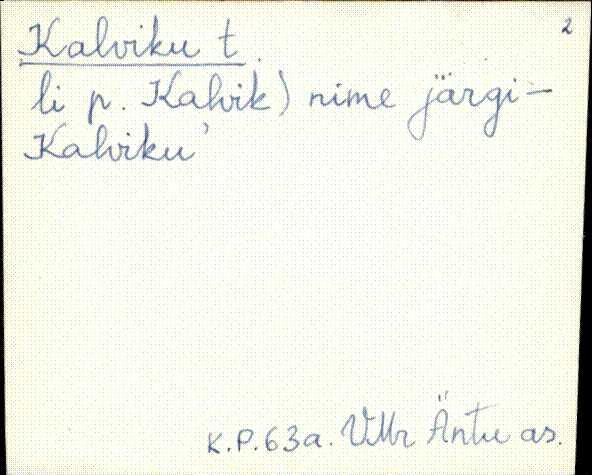 2
Kalviku t.
li p. Kalvik) nime järgi -
Kalviku'
K.P.63a. VMr Äntu as.